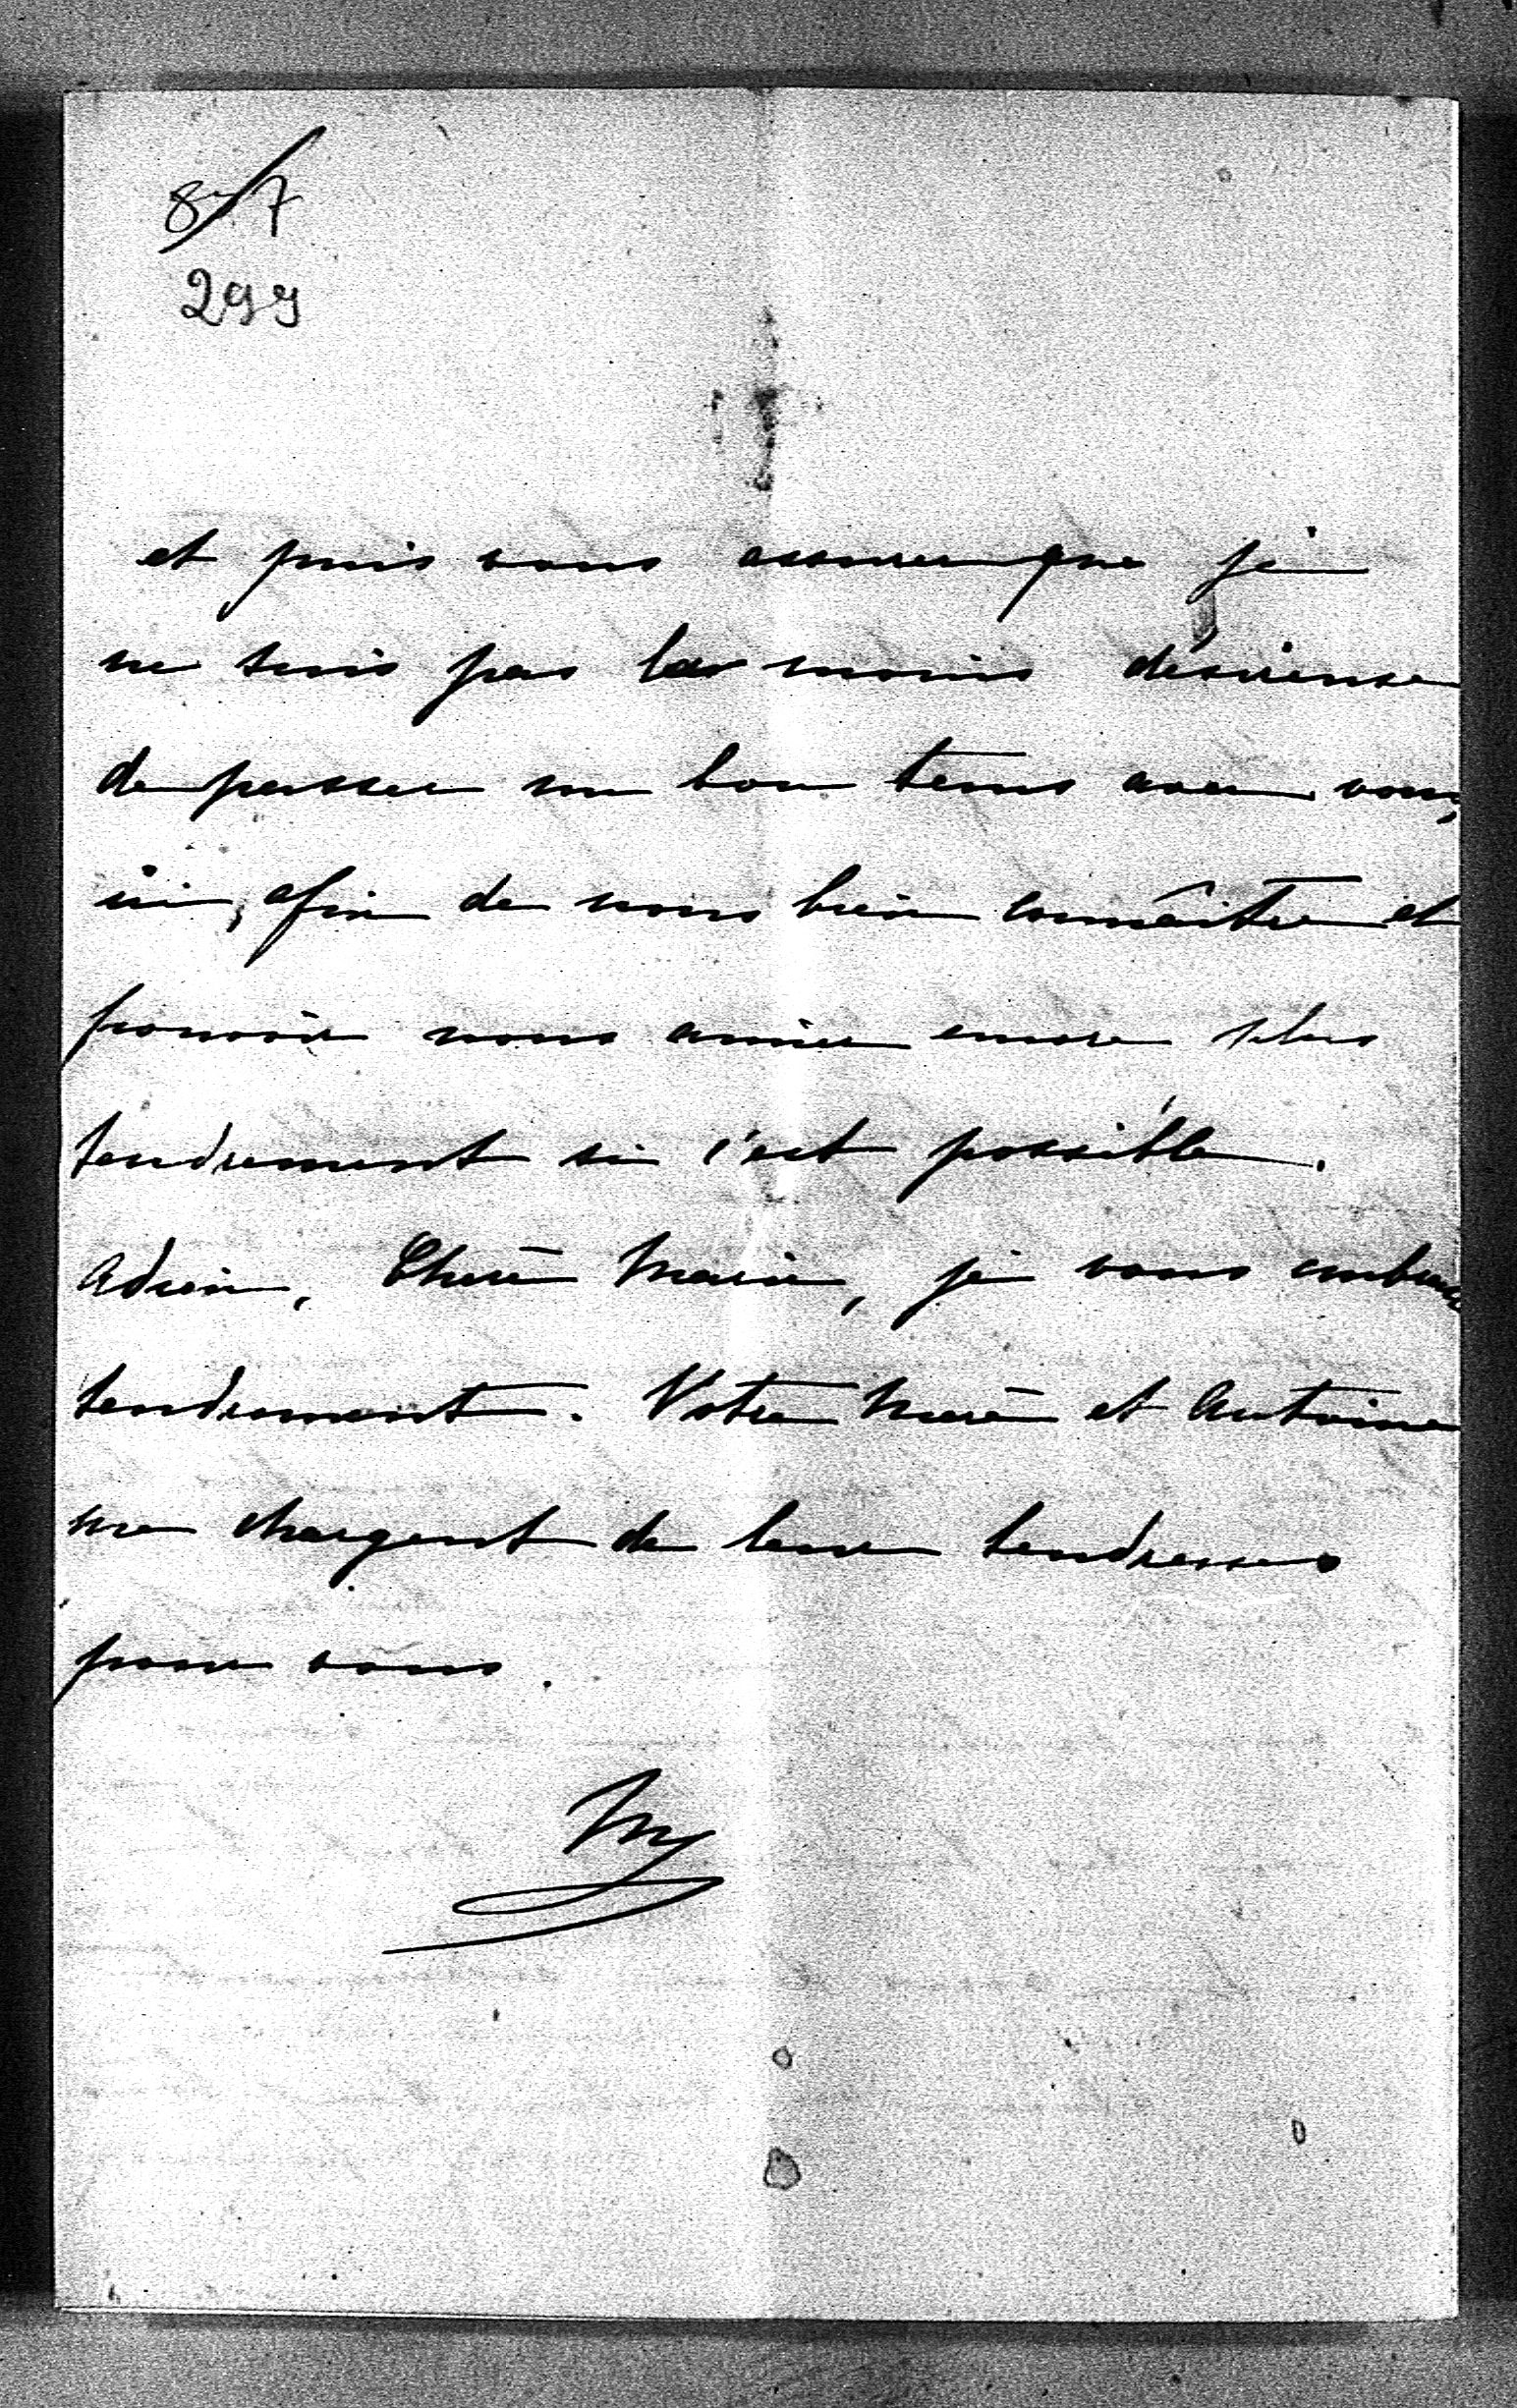 87
299
et puis vous assurer que je
ne suis pas la moins désireuse
de passer un bon tems avec vous,
ici, afin de nous bien connâitre et
pouvoir nous aimer encore plus
tendrement si c'est possible.
Adieu, Chère Marie, je vous embrasse
tendrement. Votre Mère et Antoine
me chargent de leurs tendresses
pour vous.